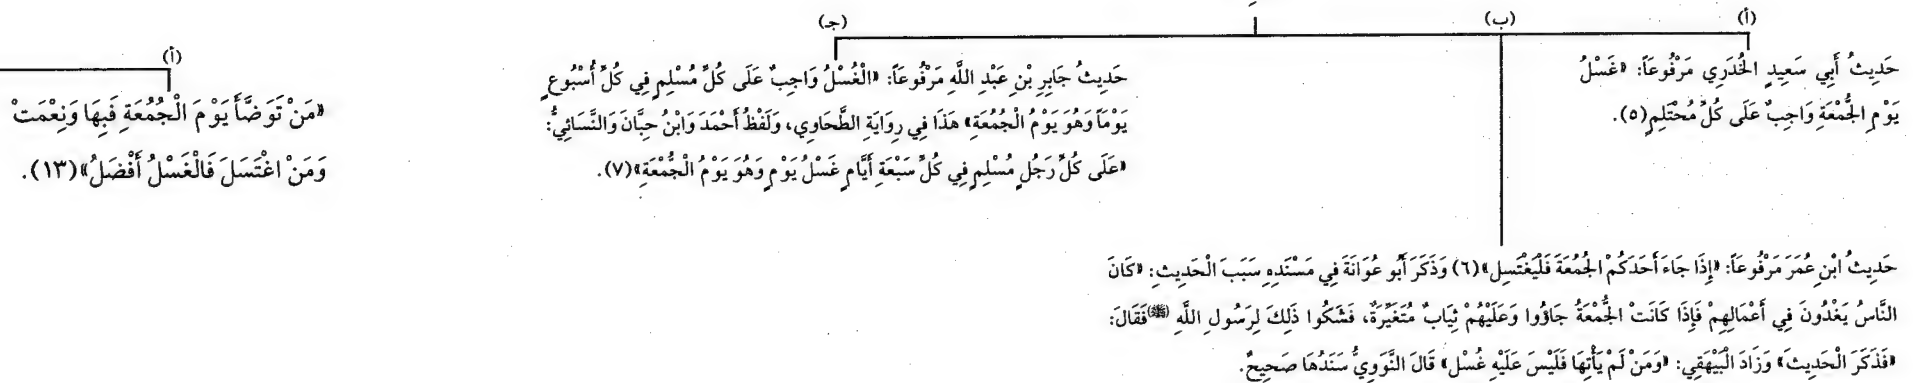 (أ)
حَدِيثُ أَبِي سَعِيدٍ الْخُدَرِي مَرْفُوعَاً: «غَسْلُ
يَوْمِ الْجُمْعَةِ وَاجِبٌ عَلَى كُلِّ مُحْتَلِمٍ(٥).
(ب)
حَدِيثُ ابْنِ عُمَرَ مَرْفُوعَاً: «إِذَا جَاءَ أَحَدَكُمْ الْجُمُعَةَ فَلْيَغْتَسِل»(٦) وَذَكَرَ أَبُو عَوَانَةَ فِي مَسْنَدِهِ سَبَبَ الْحَدِيثِ: «كَانَ
النَّاسُ يَغْدُونَ فِي أَعْمَالِهِمْ فَإِذَا كَانَتْ الْجُمْعَةُ جَاؤُوا وَعَلَيْهُمْ ثِيَابٌ مُتَغَيِّرَةٌ، فَشَكُوا ذَلِكَ لِرَسُولِ اللَّهِ (ﷺ)فَقَالَ:
«فَذَكَرَ الْحَدِيثَ» وَزَادَ الْبَيْهَقِي: «وَمَنْ لَمْ يَأْتِهَا فَلَيْسَ عَلَيْهِ غُسْل» قَالَ النَّوَوِيُّ سَنَدُهَا صَحِيحٌ.
(جـ)
حَدِيثُ جَابِرِ بْنِ عَبْدِ اللَّهِ مَرْفُوعَاً: «الْغُسْلُ وَاجِبٌ عَلَى كُلِّ مُسْلِمٍ فِي كُلِّ أُسْبُوعٍ
يَوْمَاً وَهُوَ يَوْمُ الْجُمُعَةِ» هَذَا فِي رِوَايَةِ الطَّحَاوِي، وَلَفْظُ أَحْمَدَ وَابْنُ حِبَّانَ وَالنَّسَائِيُّ:
«عَلَى كُلِّ رَجُلٍ مُسْلِمٍ فِي كُلِّ سَبْعَةِ أَيَّامٍ غَسْلُ يَوْمٍ وَهُوَ يَوْمُ الْجُمْعَةِ»(٧).
(أ)
«مَنْ تَوَضَّأَ يَوْمَ الْجُمُعَةِ فَبِهَا وَنِعْمَتْ
وَمَنْ اغْتَسَلَ فَالْغَسْلُ أَفْضَلُ»(١٣).